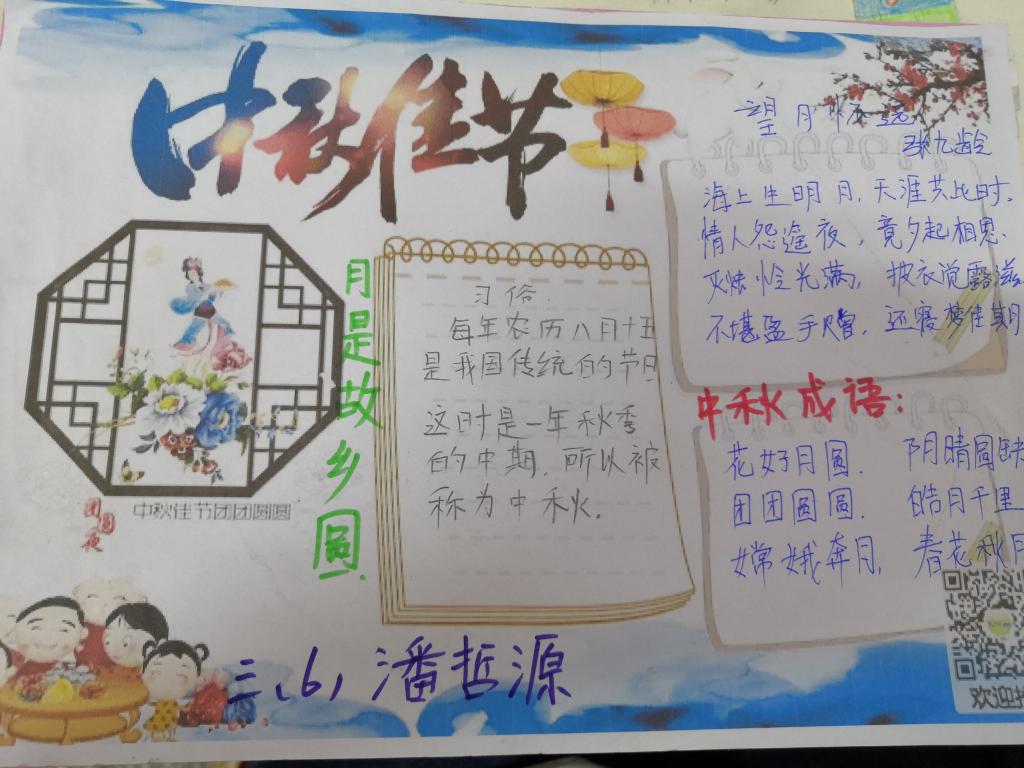 中秋佳节
望月怀远
张九龄
海上生明月,天涯共此时.
情人怨遥夜,竟夕起相思.
灭烛怜光满,披衣觉露滋
不堪盈手赠,还寝梦佳期
月是故乡圆.
习俗.
每年农历八月十五
是我国传统的节日
这时是一年秋季
的中期,所以被
称为中秋.
中秋成语:
花好月圆. 阴晴圆缺
团团圆圆. 皓月千里
嫦娥奔月, 春花秋月
中秋佳节团团圆圆
团圆夜
三(6)潘哲源
欢迎